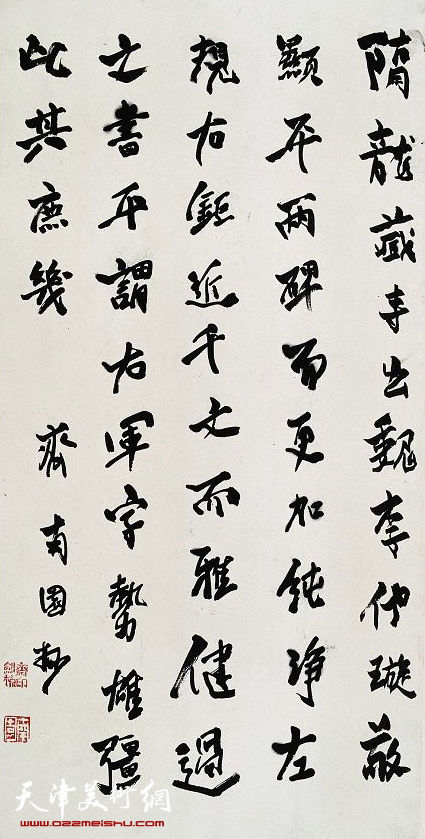 隋龍藏寺出魏李仲璇敬
顯兩碑而更加純淨左
規右鉅近千文而雅健過
之書平謂右軍字勢雄彊
此其庶幾
齊南國
天津美術網
www.022meishu.com